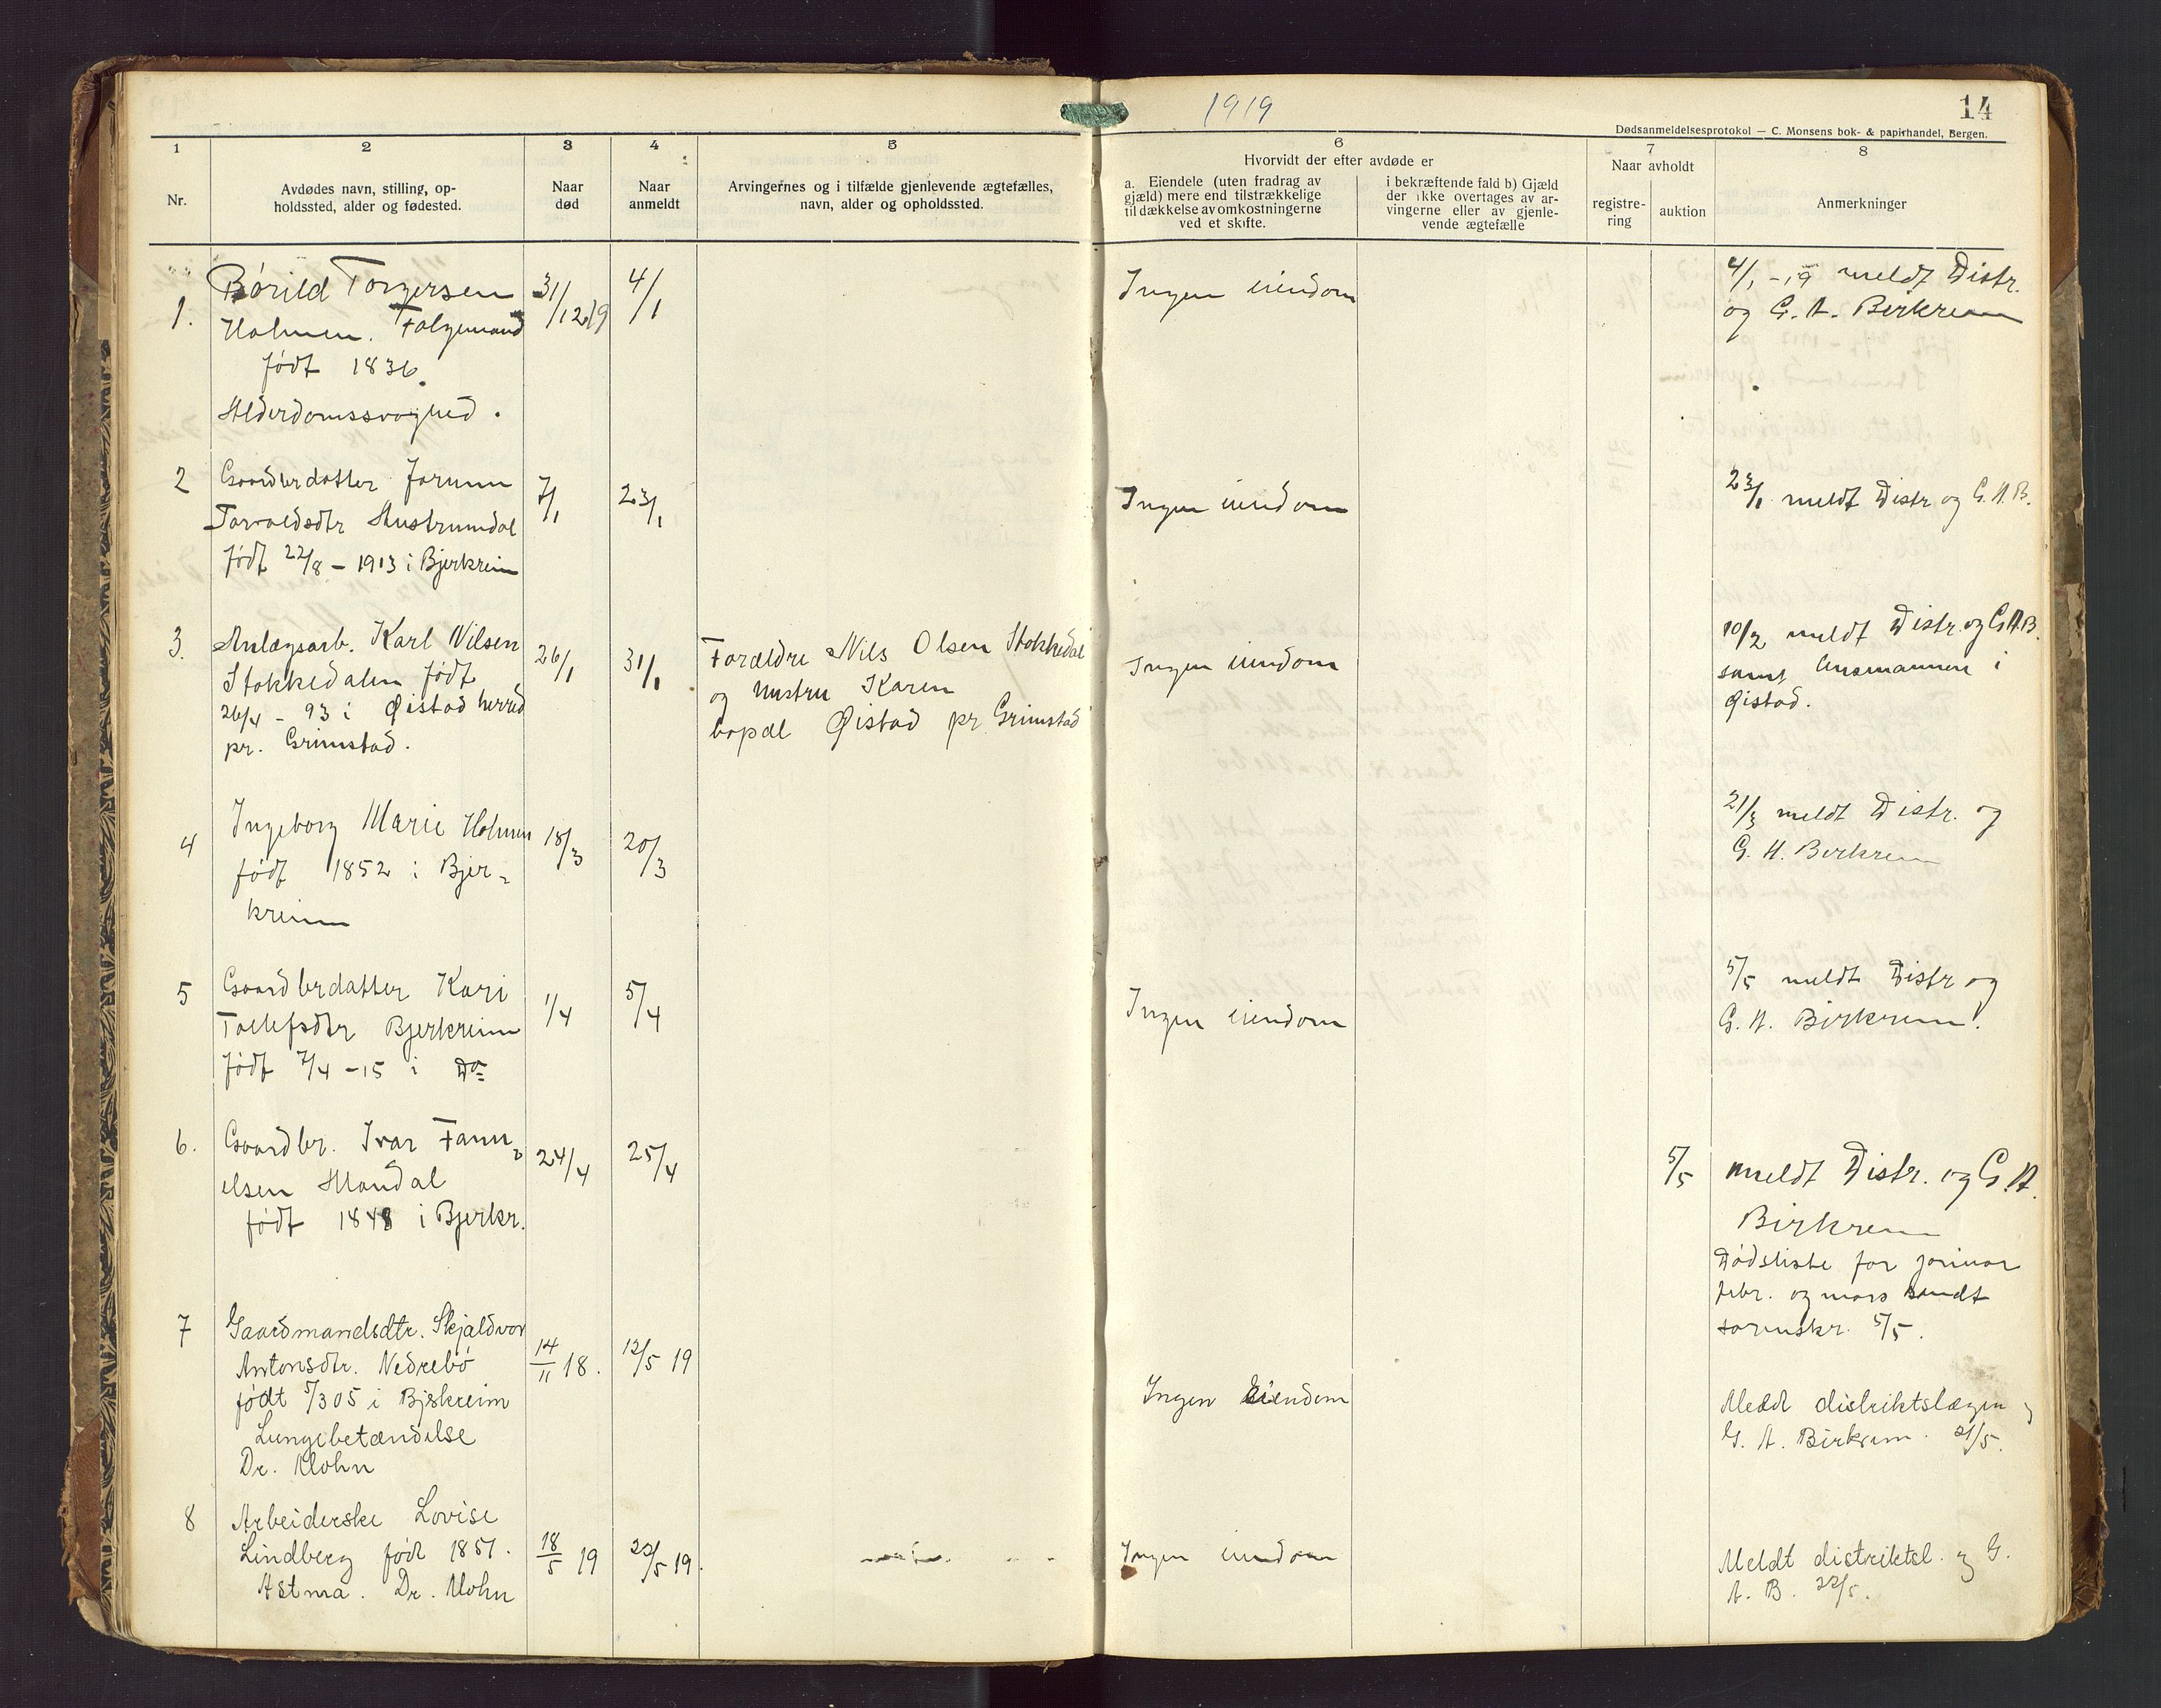 1919
14
Dødsanmeldelsesprotokol — C. Monsens bok- & papirhandel, Bergen.
1
2
3
4
5
6
7
8
Nr.
Avdødes navn, stilling, op-
holdssted, alder og fødested.
Naar
død
Naar
anmeldt
Arvingernes og i tilfælde gjenlevende ægtefælles,
navn, alder og opholdssted.
Hvorvidt der efter avdøde er
a. Eiendele (uten fradrag av
gjæld) mere end tilstrækkelige
til dækkelse av omkostningerne
ved et skifte.
i bekræftende fald b) Gjæld
der ikke overtages av ar-
vingerne eller av gjenle-
vende ægtefælle
Naar avholdt
registre-
ring
auktion
Anmerkninger
1.
Børild Torgersen
Holmen. Følgemand
født 1836.
Alderdomssvaghed.
31/12 19
4/1
Ingen eiendom
4/1 -19 meldt Distr.
og G. A. Birkrem
2
Gaardbrdatter Jorunn
Torvaldsdtr Austrumdal
født 22/8 - 1913 i Bjerkreim
7/1
23/1
Ingen eiendom
23/1 meldt Distr og G. A. B.
3.
Anlægsarb. Karl Nilsen
Stokkedalen født
26/4 - 93 i Øistad herred
pr. Grimstad.
26/1
31/1
Forældre Nils Olsen Stokkedal
og hustru Karen
bopæl Øistad pr. Grimstad
Ingen eiendom
10/2 meldt Distr. og G. A. B.
samt lensmannen i
Øistad.
4
Ingeborg Marie Holmen
født 1852 i Bjer-
kreim
18/3
20/3
21/3 meldt Distr. og
G. A. Birkrem
5
Gaardbrdatter Kari
Tollefsdtr Bjerkreim
født 7/4 -15 i Do
1/4
5/4
Ingen eiendom
5/5 meldt Distr og
G. A. Birkrem.
6.
Gaardbr. Ivar Tønn-
elsen Maudal
født 1848 i Bjerkr.
24/4
25/4
5/5 meldt Distr. og G. A.
Birkrem
Dødsliste for januar
febr. og mars sendt
sorenskr. 5/5.
7
Gaardmandsdtr. Skjaldvor
Antonsdtr. Nedrebö
födt 5/3 05 i Bjskreim
Lungebetændelse
Dr. Mohn
14/11 18.
12/5 19
Ingen Eiendom
Meldt distriktslægen og
G. A. Birkrem. 21/5.
8
Arbeiderske Lovise
Lindberg född 1851.
Astma. Dr. Mohn
18/5 19
22/5 19.
Ingen eiendom
Meldt distriktsl. og G.
A. B. 22/5.